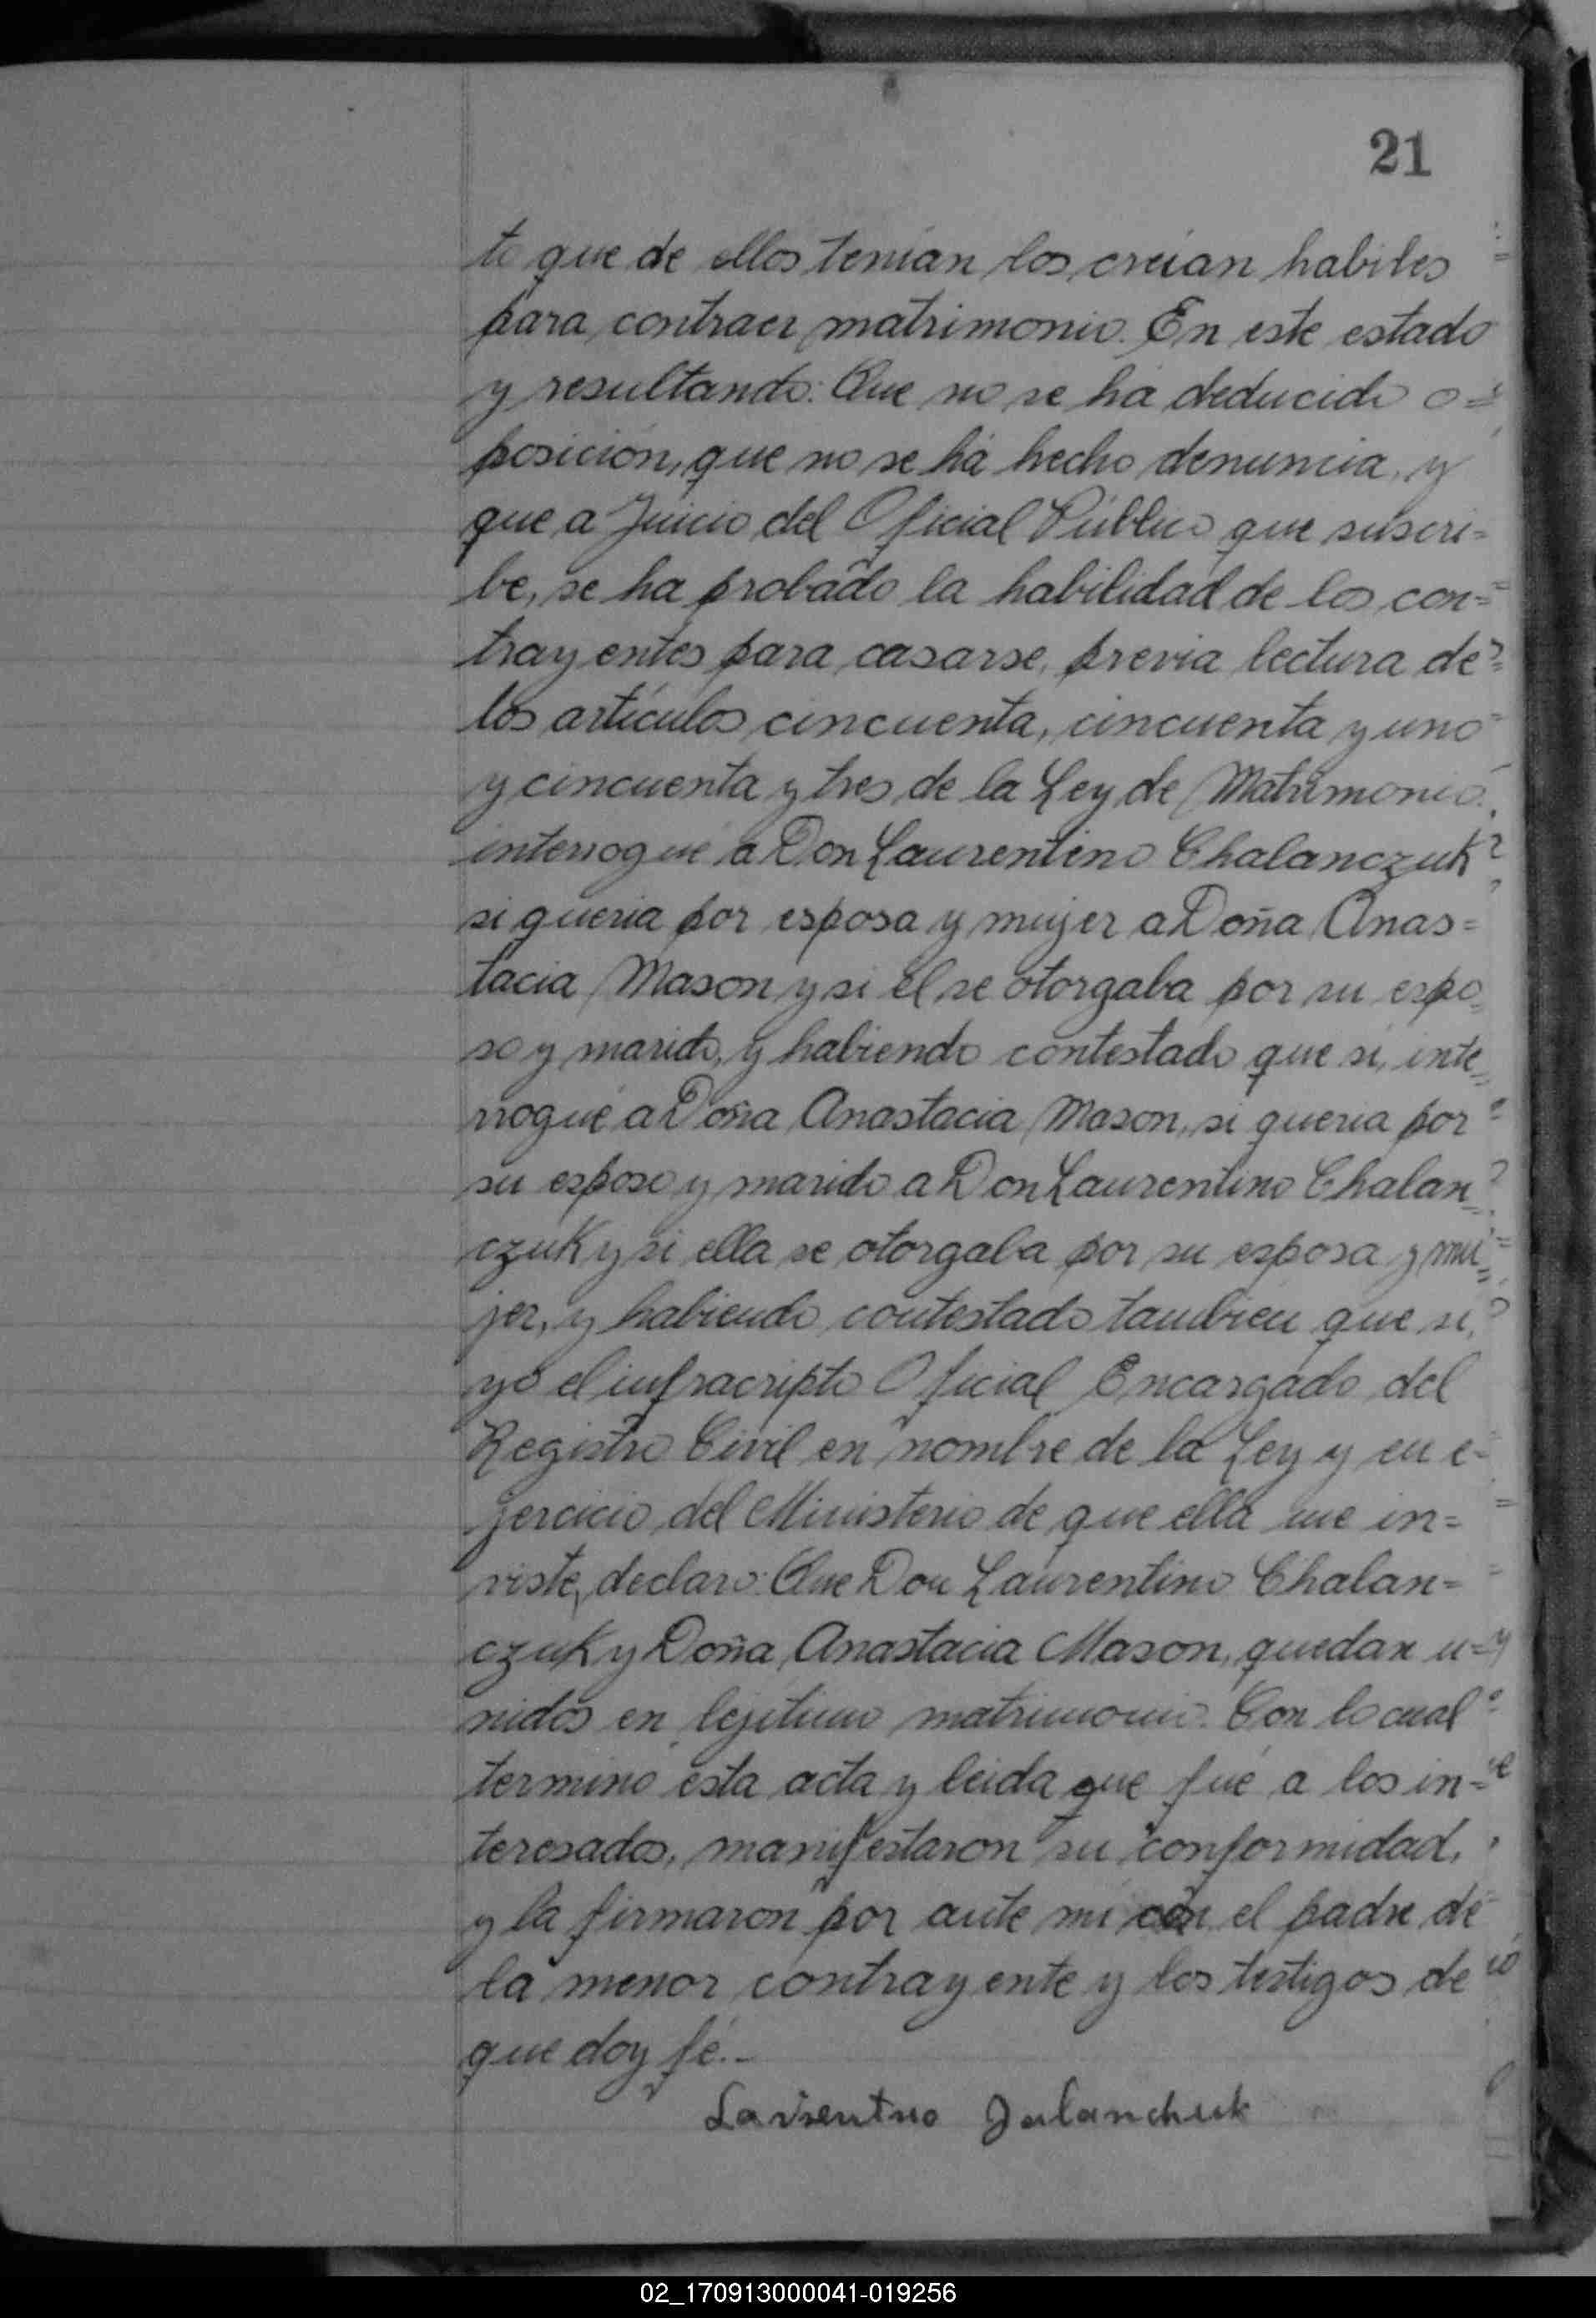 21
to que de ellos tenian los creian habiles
para contraer matrimonio. En este estado
y resultando: Que no se ha deducido o=
posición, que no se há hecho denuncia, y
que a Juicio del Oficial Público que suscri=
be, se ha probado la habilidad de los con=
trayentes para casarse, previa lectura de
los artículos cincuenta, cincuenta y uno
y cincuenta y tres de la Ley de Matrimonio
interrogué a Don Laurentino Chalanczuk
si queria por esposa y mujer a Doña Anas=
tacia Mason y si él se otorgaba por su espo=
so y marido, y habiendo contestado que si, inte=
rrogué a Doña Anastacia Mason, si queria por
su esposo y marido a Don Laurentino Chalan=
czuk y si ella se otorgaba por su esposa y mu=
jer, y habiendo contestado tambien que si,
yo el infracripto Oficial Encargado del
Registro Civil en nombre de la Ley y en e=
jercicio del Ministerio de que ella me in=
viste, declaro: Que Don Laurentino Chalan=
czuk y Doña Anastacia Mason, quedan u=
nidos en lejitimo matrimonio. Con lo cual
terminó esta acta y leida que fué a los in=
teresados, manifestaron su conformidad,
y la firmaron por ante mi con el padre de
la menor contrayente y los testigos de
que doy fé.-
Laurentino Jalanchuk
02_170913000041-019256